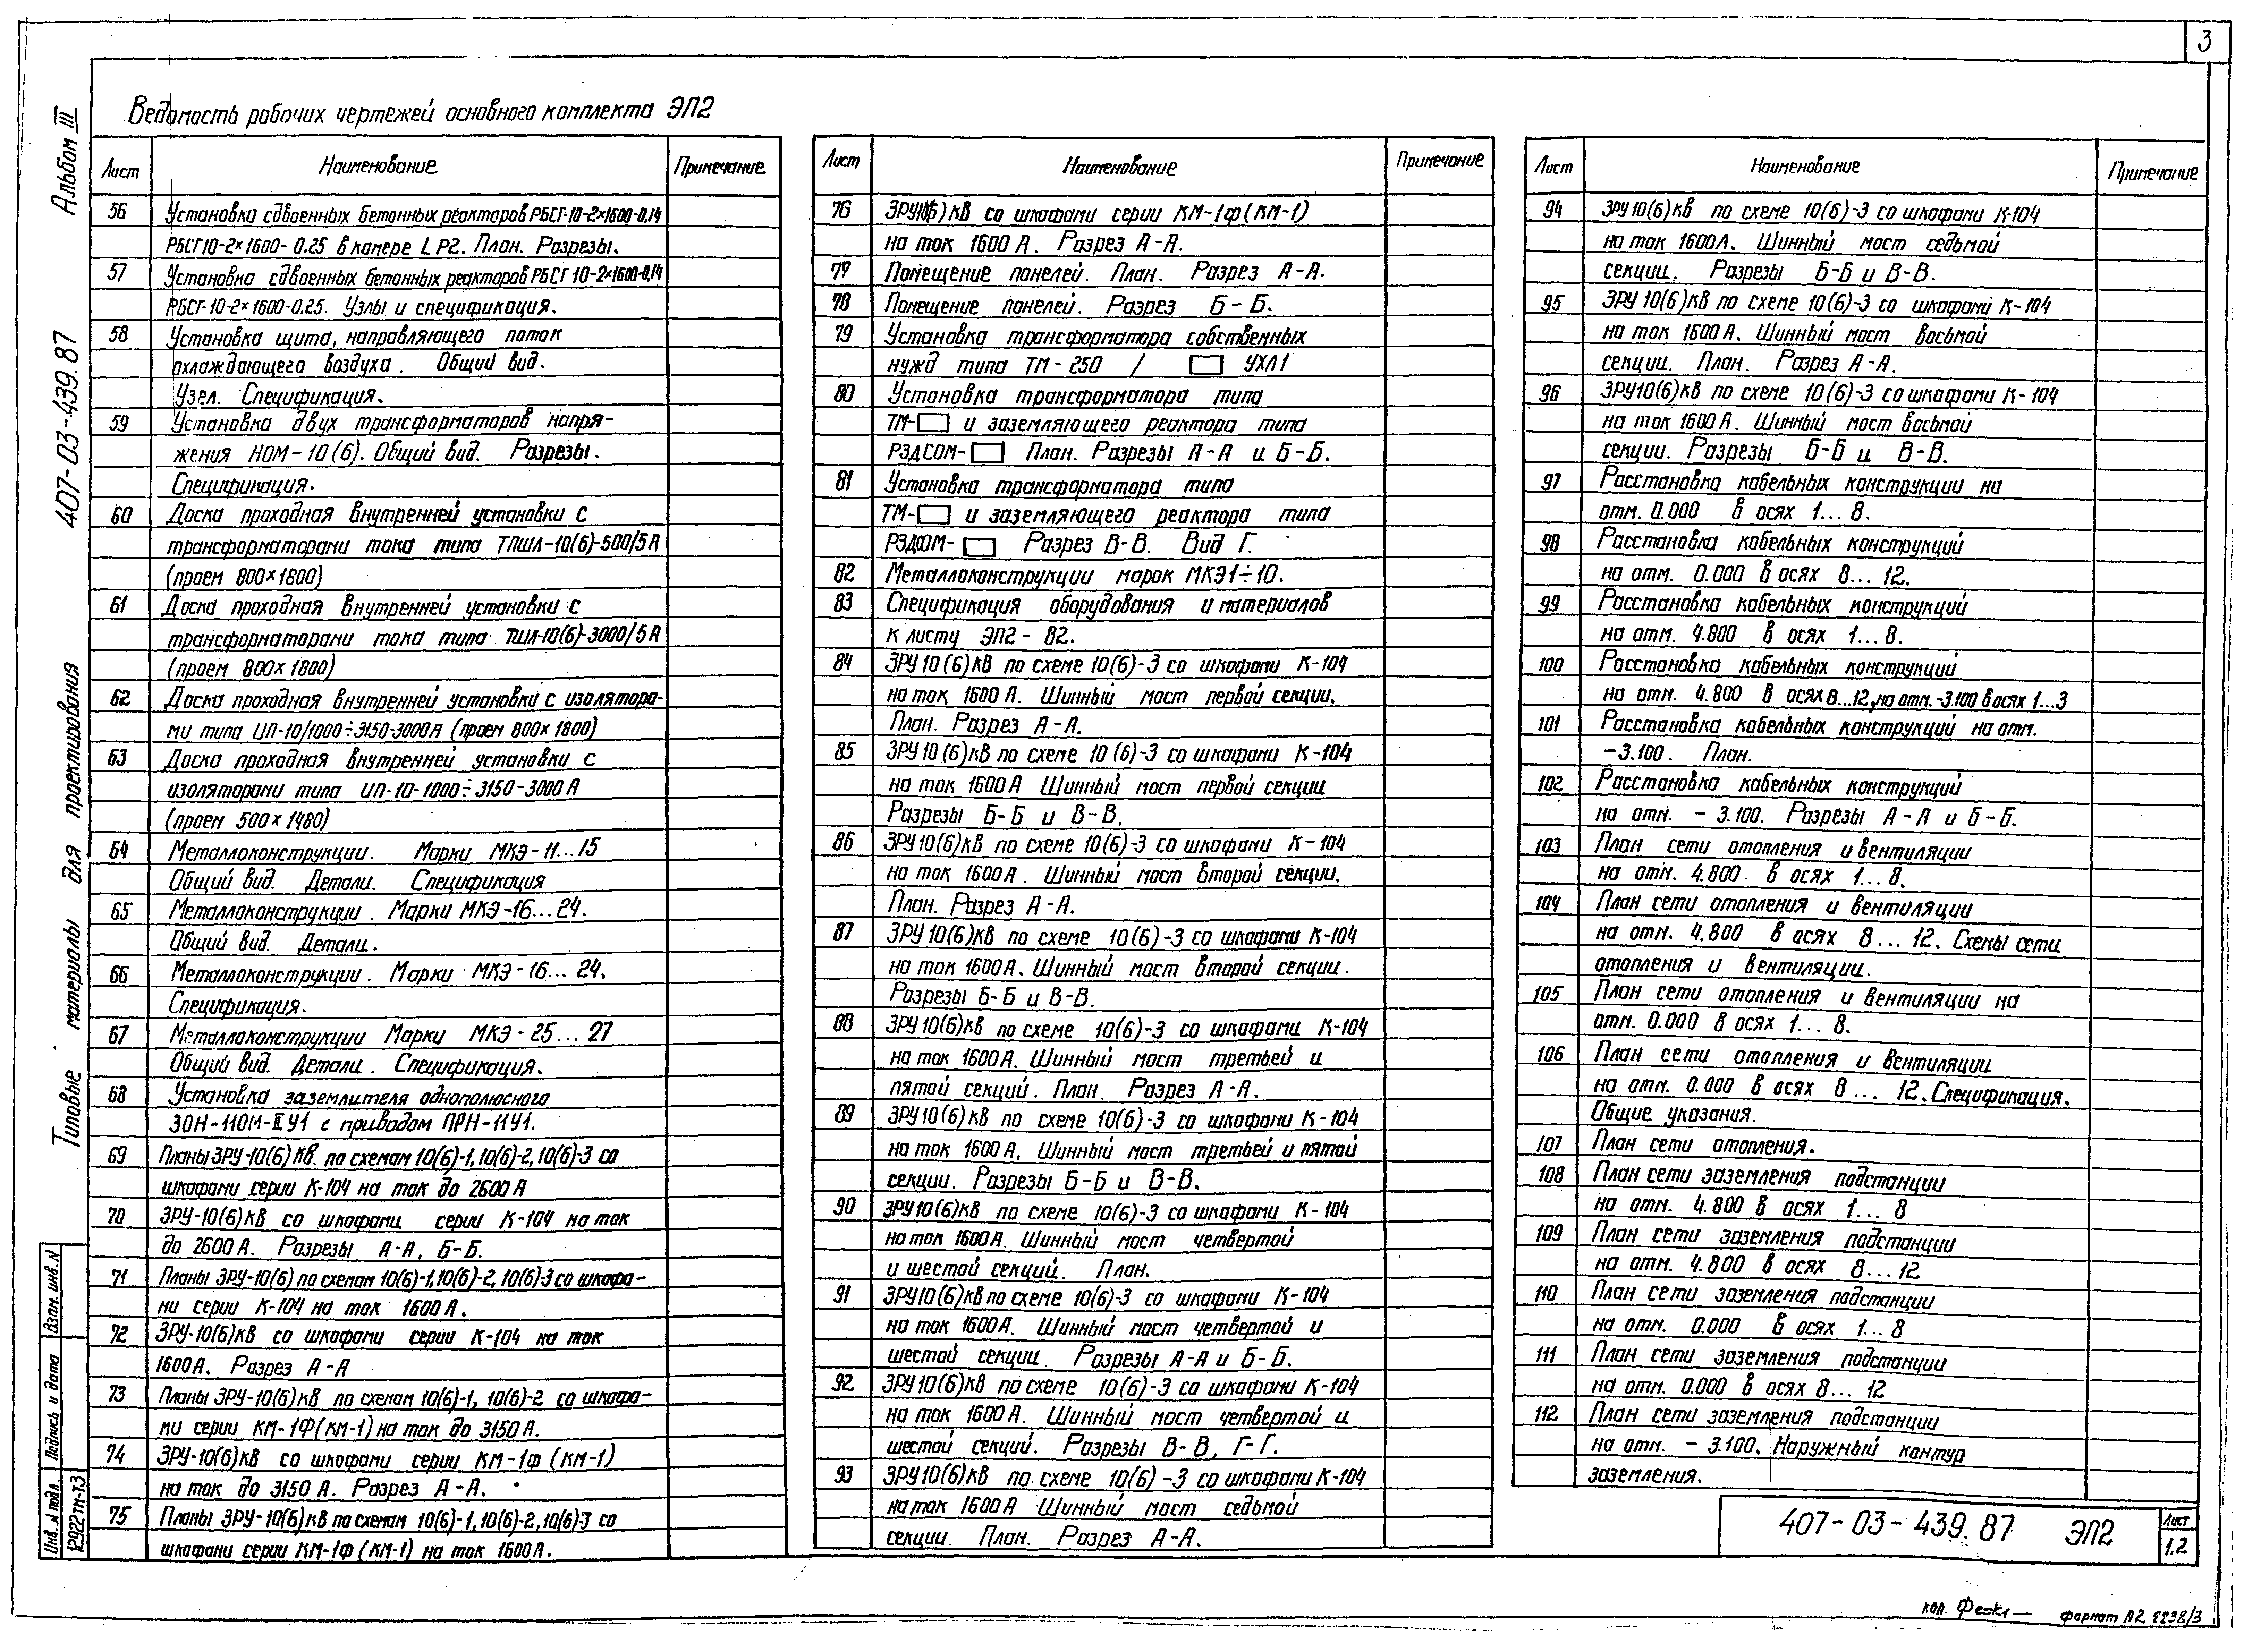 3
Ведомость рабочих чертежей основного комплекта ЭП2
Альбом III
407-03-439.87
Типовые материалы для проектирования
Взам. инв. N
Подпись и дата
Инв. N подл.
12922тм-т3
Лист Наименование Примечание
56 Установка сдвоенных бетонных реакторов РБСГ-10-2×1600-0,14
РБСГ10-2×1600-0.25 в камере LР2. План. Разрезы.
57 Установка сдвоенных бетонных реакторов РБСГ 10-2×1600-0,14
РБСГ-10-2×1600-0.25. Узлы и спецификация.
58 Установка щита, направляющего поток
охлаждающего воздуха. Общий вид.
Узел. Спецификация.
59 Установка двух трансформаторов напря-
жения НОМ-10(6). Общий вид. Разрезы.
Спецификация.
60 Доска проходная внутренней установки с
трансформаторами тока типа ТПШЛ-10(6)-500/5А
(проем 800×1800)
61 Доска проходная внутренней установки с
трансформаторами тока типа ТШЛ-10(6)-3000/5А
(проем 800×1800)
62 Доска проходная внутренней установки с изолятора-
ми типа ИП-10/1000÷3150-3000А (проем 800×1800)
63 Доска проходная внутренней установки с
изоляторами типа ИП-10-1000÷3150-3000А
(проем 500×1480)
64 Металлоконструкции. Марки МКЭ-11...15
Общий вид. Детали. Спецификация
65 Металлоконструкции. Марки МКЭ-16...24.
Общий вид. Детали.
66 Металлоконструкции. Марки МКЭ-16...24.
Спецификация.
67 Металлоконструкции Марки МКЭ-25...27
Общий вид. Детали. Спецификация.
68 Установка заземлителя однополюсного
ЗОН-110М-IIУ1 с приводом ПРН-11У1.
69 Планы ЗРУ-10(6) кВ. по схемам 10(6)-1,10(6)-2,10(6)-3 со
шкафами серии К-104 на ток до 2600А
70 ЗРУ-10(6)кВ со шкафами серии К-104 на ток
до 2600А. Разрезы А-А, Б-Б.
71 Планы ЗРУ-10(6) по схемам 10(6)-1,10(6)-2, 10(6)-3 со шкафа-
ми серии К-104 на ток 1600А.
72 ЗРУ-10(6)кВ со шкафами серии К-104 на ток
1600А. Разрез А-А
73 Планы ЗРУ-10(6)кВ по схемам 10(6)-1, 10(6)-2 со шкафа-
ми серии КМ-1Ф(КМ-1) на ток до 3150А.
74 ЗРУ-10(6)кВ со шкафами серии КМ-1Ф (КМ-1)
на ток до 3150 А. Разрез А-А.
75 Планы ЗРУ-10(6)кВ по схемам 10(6)-1,10(6)-2,10(6)-3 со
шкафами серии КМ-1Ф (КМ-1) на ток 1600А.
Лист Наименование Примечание
76 ЗРУ10(6)кВ со шкафами серии КМ-1Ф(КМ-1)
на ток 1600А. Разрез А-А.
77 Помещение панелей. План. Разрез А-А.
78 Помещение панелей. Разрез Б-Б.
79 Установка трансформатора собственных
нужд типа ТМ-250 / УХЛ1
80 Установка трансформатора типа
ТМ- и заземляющего реактора типа
РЗДСОМ- План. Разрезы А-А и Б-Б.
81 Установка трансформатора типа
ТМ- и заземляющего реактора типа
РЗДСОМ- Разрез В-В. Вид Г.
82 Металлоконструкции марок МКЭ1÷10.
83 Спецификация оборудования и материалов
к листу ЭП2-82.
84 ЗРУ10(6)кВ по схеме 10(6)-3 со шкафами К-104
на ток 1600А. Шинный мост первой секции.
План. Разрез А-А.
85 ЗРУ10(6)кВ по схеме 10(6)-3 со шкафами К-104
на ток 1600А Шинный мост первой секции
Разрезы Б-Б и В-В.
86 ЗРУ10(6)кВ по схеме 10(6)-3 со шкафами К-104
на ток 1600А. Шинный мост второй секции.
План. Разрез А-А.
87 ЗРУ10(6)кВ по схеме 10(6)-3 со шкафами К-104
на ток 1600А. Шинный мост второй секции.
Разрезы Б-Б и В-В.
88 ЗРУ10(6)кВ по схеме 10(6)-3 со шкафами К-104
на ток 1600А. Шинный мост третьей и
пятой секций. План. Разрез А-А.
89 ЗРУ10(6)кВ по схеме 10(6)-3 со шкафами К-104
на ток 1600А, Шинный мост третьей и пятой
секции. Разрезы Б-Б и В-В.
90 ЗРУ10(6)кВ по схеме 10(6)-3 со шкафами К-104
на ток 1600А. Шинный мост четвертой
и шестой секций. План.
91 ЗРУ10(6)кВ по схеме 10(6)-3 со шкафами К-104
на ток 1600А. Шинный мост четвертой и
шестой секции. Разрезы А-А и Б-Б.
92 ЗРУ10(6)кВ по схеме 10(6)-3 со шкафами К-104
на ток 1600А. Шинный мост четвертой и
шестой секций. Разрезы В-В, Г-Г.
93 ЗРУ10(6)кВ по схеме 10(6)-3 со шкафами К-104
на ток 1600А Шинный мост седьмой
секции. План. Разрез А-А.
Лист Наименование Примечание
94 ЗРУ10(6)кВ по схеме 10(6)-3 со шкафами К-104
на ток 1600А. Шинный мост седьмой
секции. Разрезы Б-Б и В-В.
95 ЗРУ10(6)кВ по схеме 10(6)-3 со шкафами К-104
на ток 1600А. Шинный мост восьмой
секции. План. Разрез А-А.
96 ЗРУ10(6)кВ по схеме 10(6)-3 со шкафами К-104
на ток 1600А. Шинный мост восьмой
секции. Разрезы Б-Б и В-В.
97 Расстановка кабельных конструкции на
отм. 0.000 в осях 1...8.
98 Расстановка кабельных конструкций
на отм. 0.000 в осях 8...12.
99 Расстановка кабельных конструкций
на отм. 4.800 в осях 1...8.
100 Расстановка кабельных конструкций
на отм. 4.800 в осях 8...12, на отм.-3.100 в осях 1...3
101 Расстановка кабельных конструкций на отм.
-3.100. План.
102 Расстановка кабельных конструкций
на отм. -3.100. Разрезы А-А и Б-Б.
103 План сети отопления и вентиляции
на отм. 4.800. в осях 1...8.
104 План сети отопления и вентиляции
на отм. 4.800 в осях 8...12. Схемы сети
отопления и вентиляции.
105 План сети отопления и вентиляции на
отм. 0.000 в осях 1...8.
106 План сети отопления и вентиляции
на отм. 0.000 в осях 8...12. Спецификация.
Общие указания.
107 План сети отопления.
108 План сети заземления подстанции
на отм. 4.800 в осях 1...8
109 План сети заземления подстанции
на отм. 4.800 в осях 8...12
110 План сети заземления подстанции
на отм. 0.000 в осях 1...8
111 План сети заземления подстанции
на отм. 0.000 в осях 8...12
112 План сети заземления подстанции
на отм. -3.100. Наружный контур
заземления.
407-03-439.87 ЭП2
Лист
1.2
кол.
формат А2